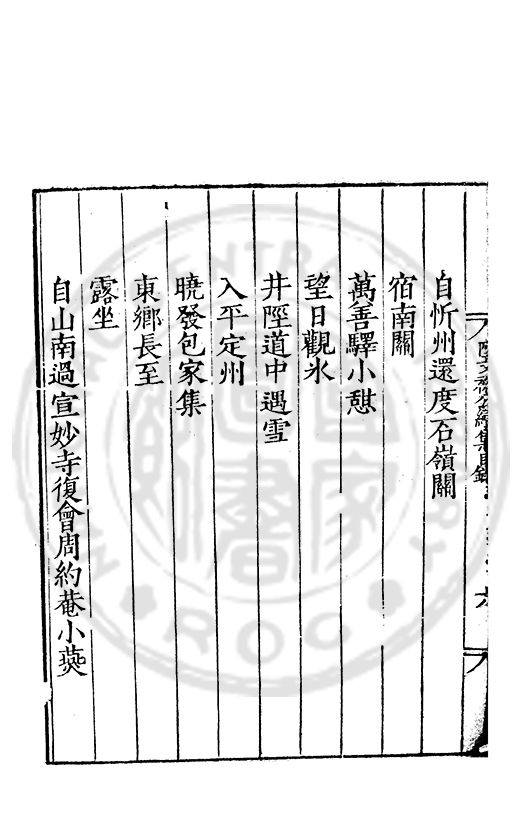 自忻州還度石嶺關
宿南關
萬善驛小憇
望日觀氷
井陘道中遇雪
入平定州
曉發包家集
東鄉長至
露坐
自山南過宣妙寺復會周約菴小爽